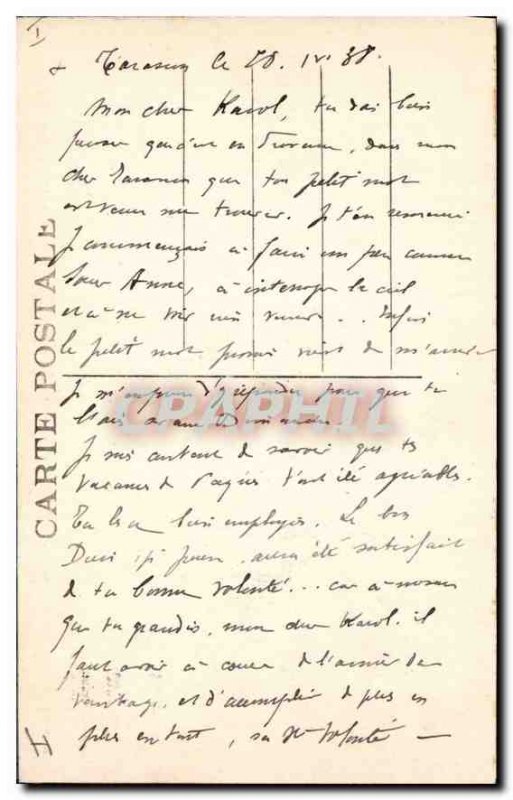 I
+ Tarascon le 28. IV. 38.
Mon cher Karol, tu dois bien
penser que c'est en Provence, dans mon
cher Tarascon que ton petit mot
est venu me trouver. Je t'en remercie
Je commençais à faire un peu comme
Sœur Anne, à interroger le ciel
et à ne voir rien venir... Enfin
le petit mot promis vient de m'arriver
Je m'empresse d'y répondre pour que tu
l'aies avant Dimanche.
Je suis content de savoir que tes
vacances de Pâques t'ont été agréables.
Tu les a bien employées. Le bon
Dieu, je pense, aura été satisfait
de ta bonne volonté... car à mesure
que tu grandis, mon cher Karol, il
faut avoir à cœur de l'aimer da-
vantage, et d'accomplir de plus en
plus en tout, sa Ste Volonté —
CARTE POSTALE
CPAPHIL
H